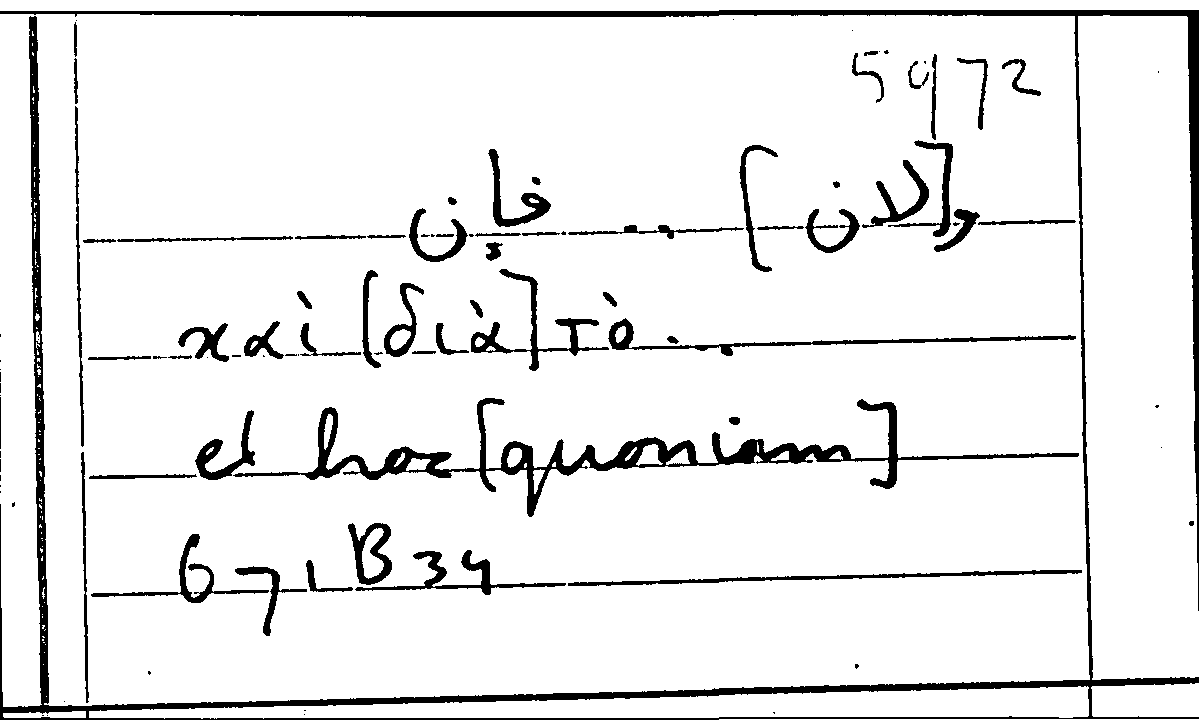 5972
و[لان] ... فإن
καὶ [διὰ] τὸ ...
et hoc [quoniam]
671B34